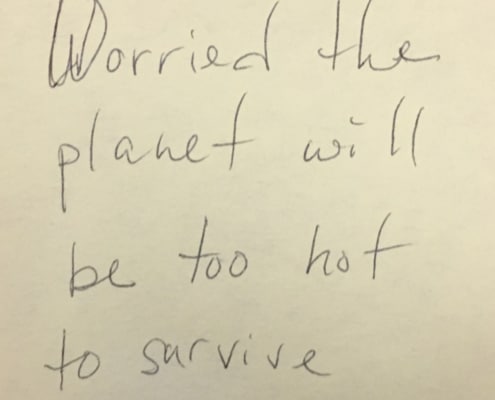 Worried the
planet will
be too hot
to survive